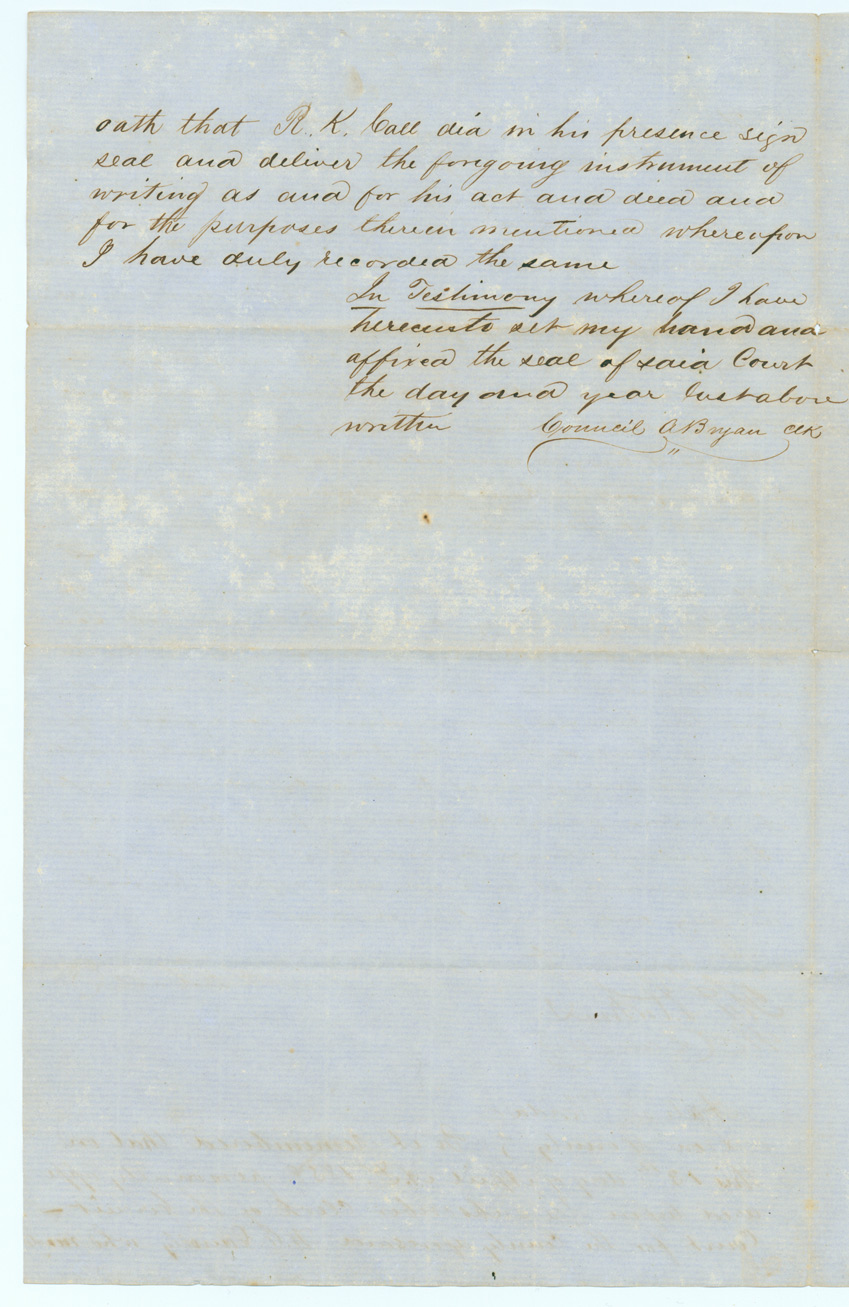 oath that R. K. Call did in his presence sign
seal and deliver the foregoing instrument of
writing as and for his act and deed and
for the purposes therein mentioned whereupon
I have duly recorded the same
In Testimony whereof I have
hereunto set my hand and
affixed the seal of said Court
the day and year last above
written Council A Bryan Clk